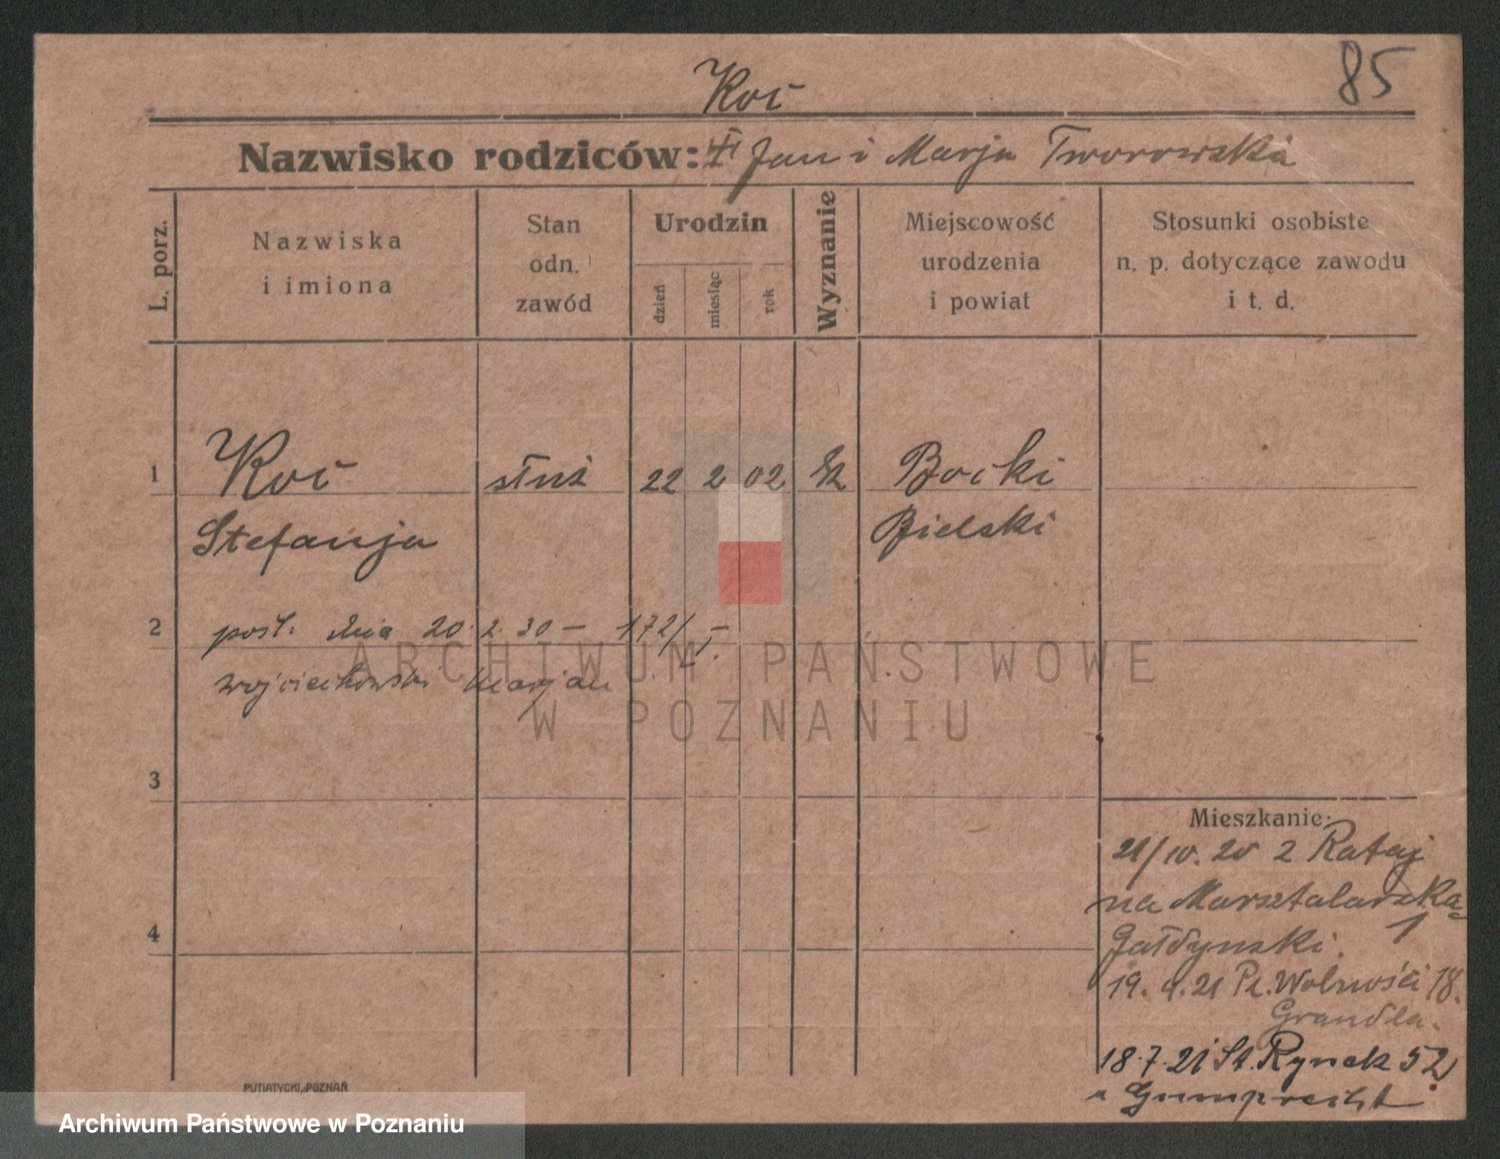 Koć
85
Nazwisko rodziców: Jan i Marja Tworowska
L. porz.
Nazwiska
i imiona
Stan
odn.
zawód
Urodzin
dzień
miesiąc
rok
Wyznanie
Miejscowość
urodzenia
i powiat
Stosunki osobiste
n. p. dotyczące zawodu
i t. d.
1 Koć służ 22 2 02 Boćki
Stefanja Bielski
2 pośl. dnia 20.2.30 – 172/I.
Wojciechowski Marjan
3
4
Mieszkanie:
21/10.20 z Rataj
na Marsztalarska
1
Gałdyński.
19. 4.21 Pl. Wolności 18.
Grandla.
18.7.21 St. Rynek 52
u Gumprecht
PUTIATYCKI, POZNAŃ
ARCHIWUM PAŃSTWOWE
W POZNANIU
Archiwum Państwowe w Poznaniu